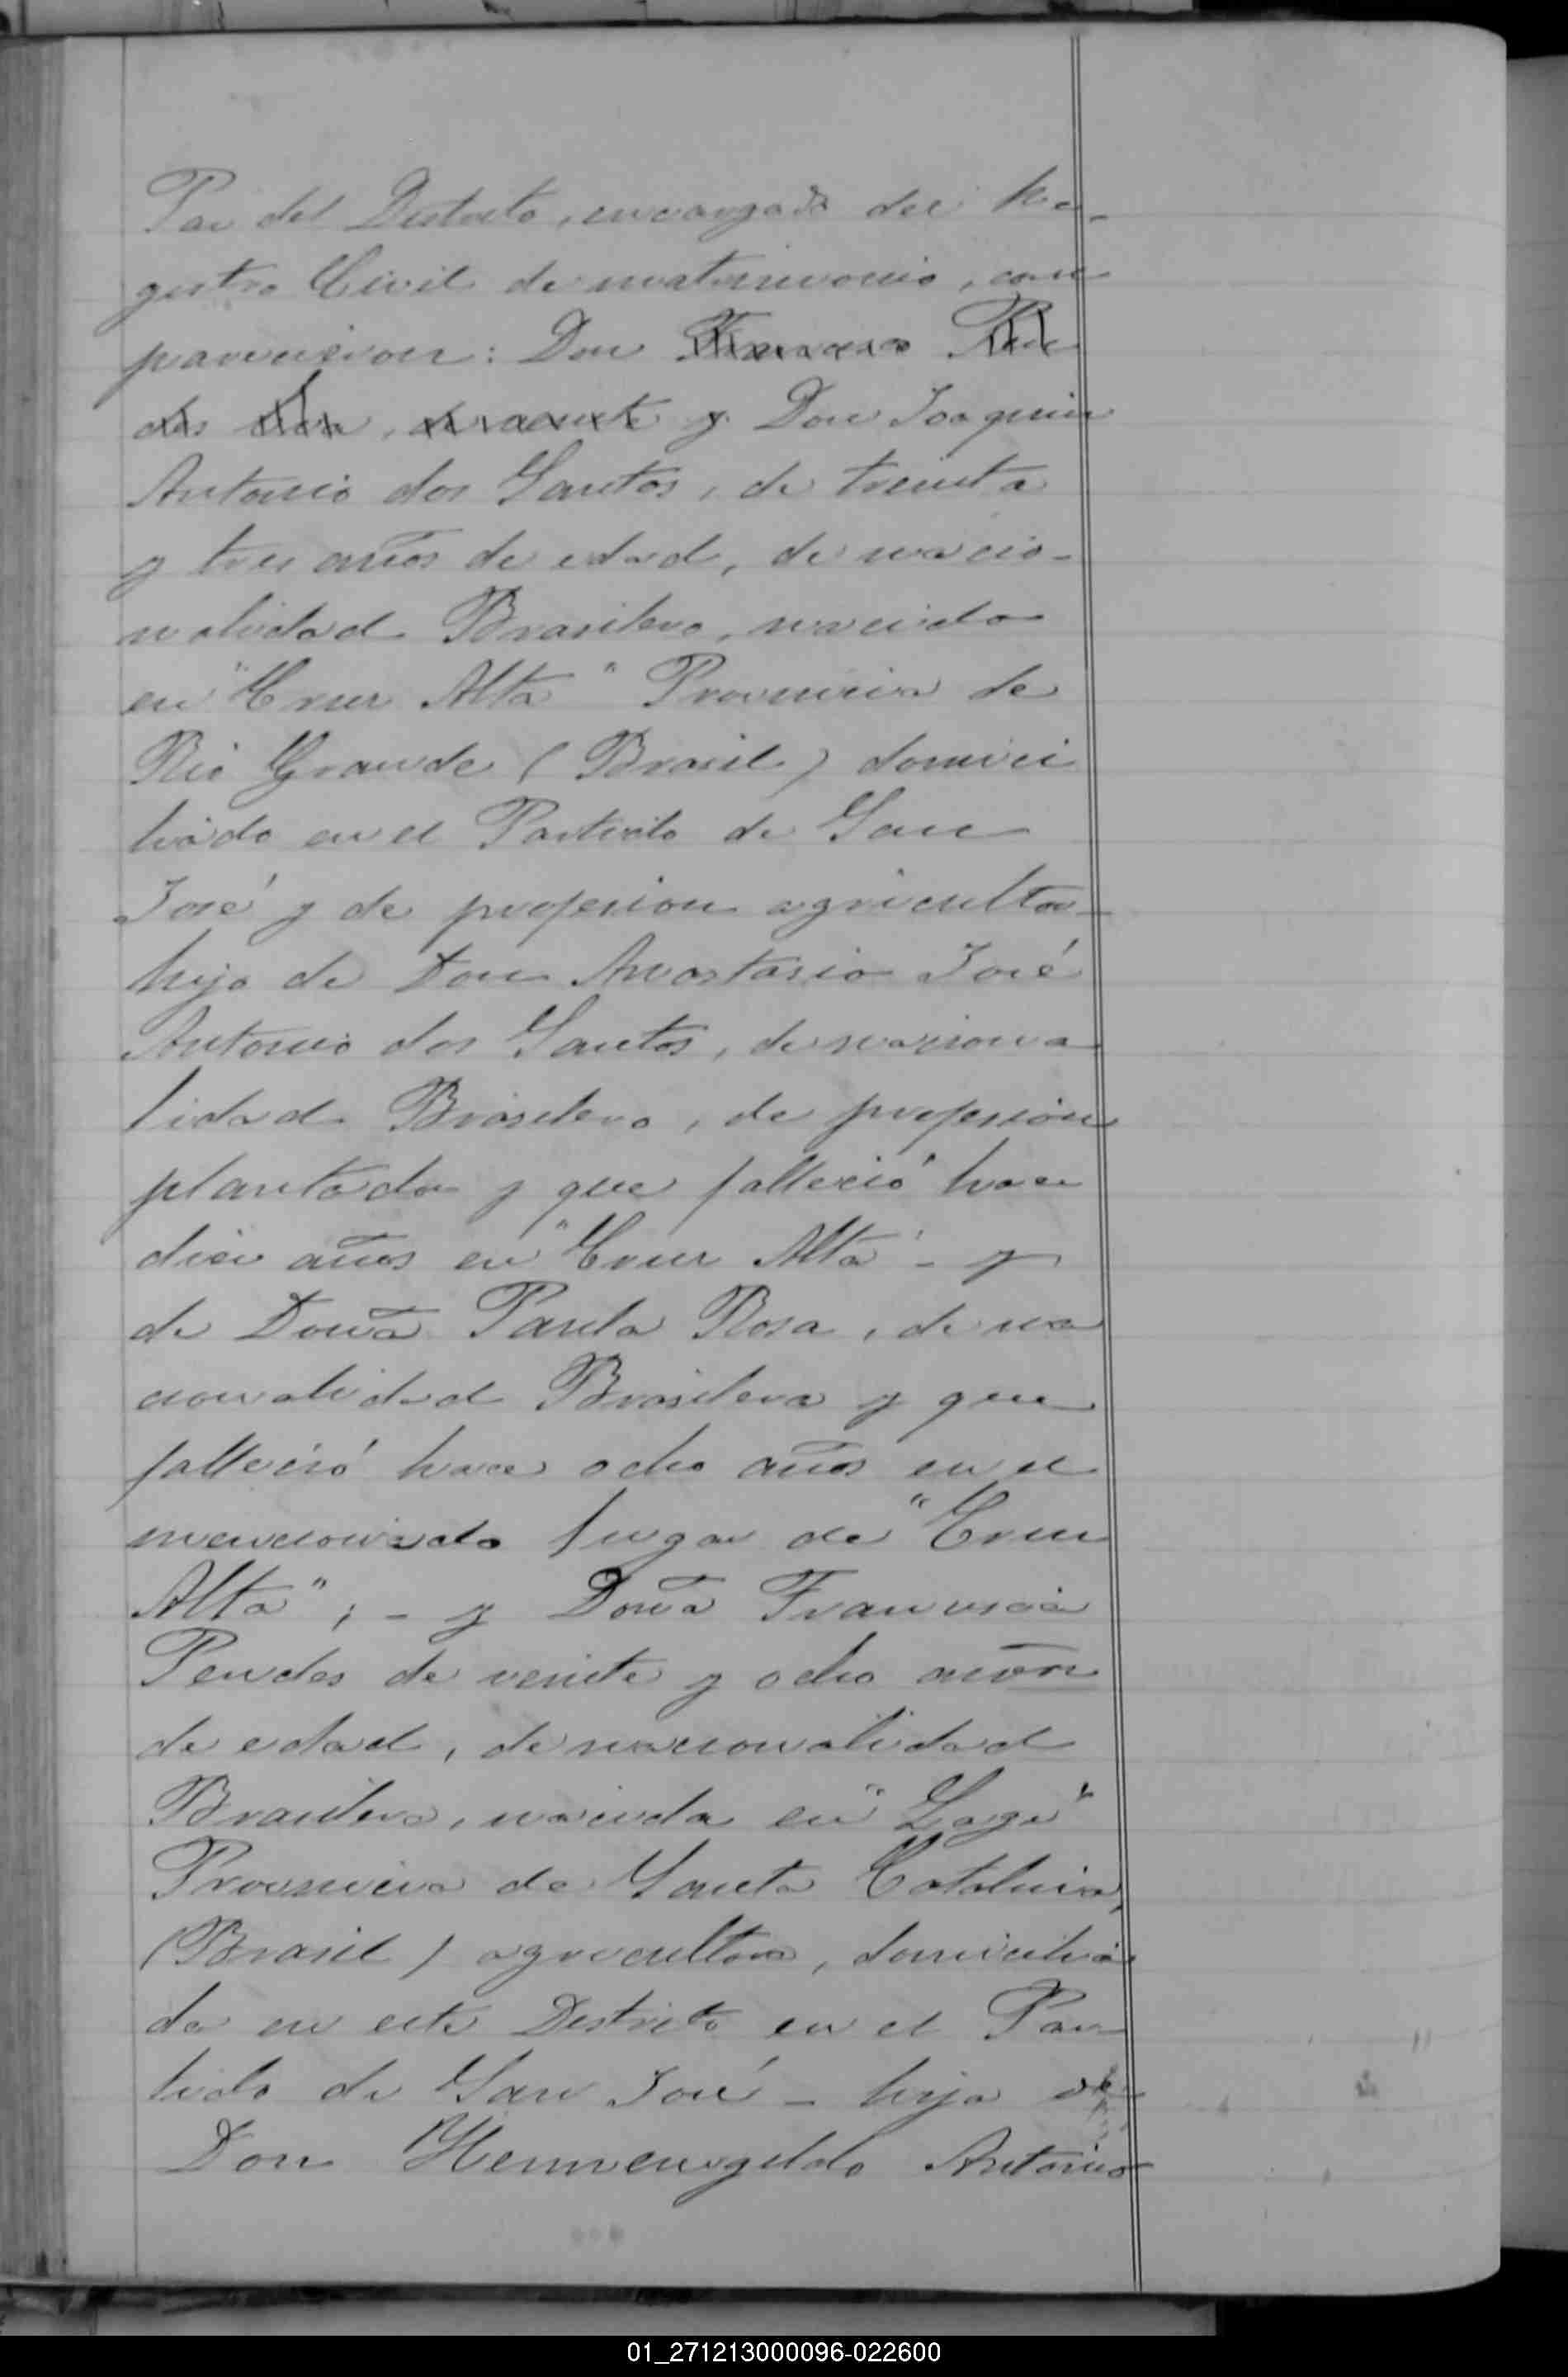 Paz del Distrito, encargado del Re-
gistro Civil de matrimonio, com
parecieron: Don
y Don Joaquin
Antonio dos Santos, de treinta
y tres años de edad, de nacio-
nalidad Brasilera, nacido
en "Cruz Alta" Provincia de
Rio Grande (Brasil) domici
liado en el Partido de San
José y de profesion agricultor
hijo de Don Anastasio José
Antonio dos Santos, de naciona
lidad Brasilera, de profesión
plantador y que falleció hace
diez años en "Cruz Alta" - y
de Doña Paula Rosa, de na
cionalidad Brasilera y que
falleció hace ocho años en el
mencionado lugar de "Cruz
Alta"; - y Doña Francisca
Pendes de veinte y ocho años
de edad, de nacionalidad
Brasilera, nacida en "Lage"
Provincia de Santa Catalina,
(Brasil) agricultora, domicilia
da en este Distrito en el Par
tido de San José - hija de
Don Hermenegildo Antonio
01_271213000096-022600